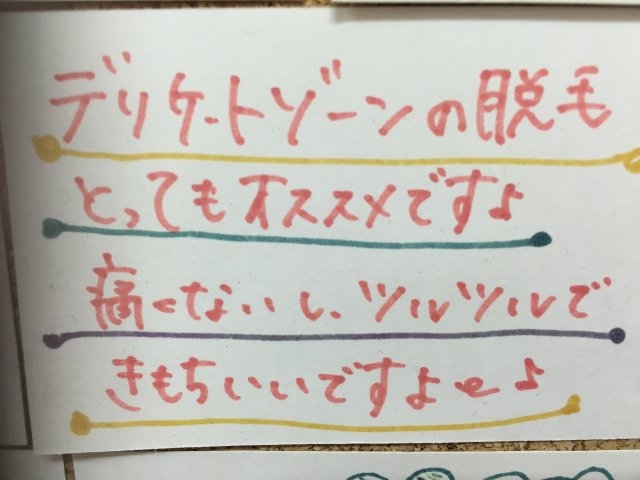 デリケートゾーンの脱毛
とってもオススメですよ
痛くないし、ツルツルで
きもちいいですよ〜♪